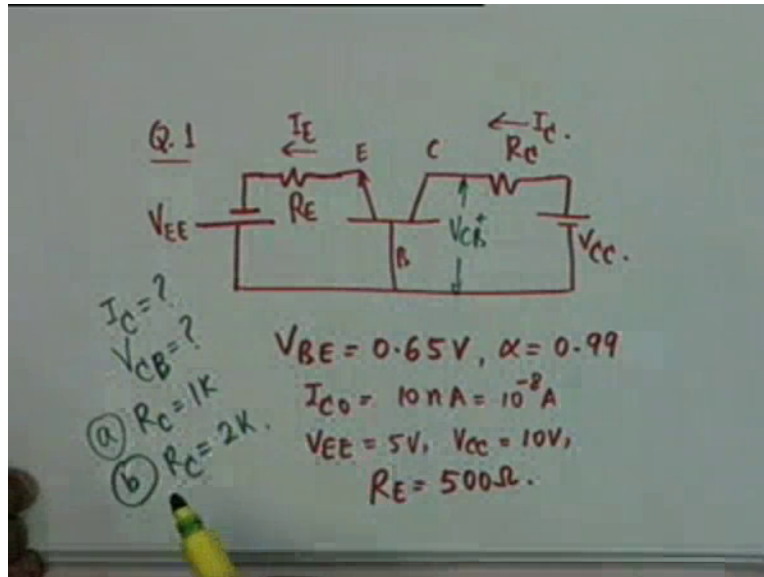 Q.1
I_E
E
C
← I_C.
R_C
V_EE
R_E
B
V_CB
+
V_CC.
I_C = ?
V_CB = ?
(a) R_C = 1K
(b) R_C = 2K.
V_BE = 0.65V, α = 0.99
I_CO = 10nA = 10^-8 A
V_EE = 5V, V_CC = 10V,
R_E = 500Ω.